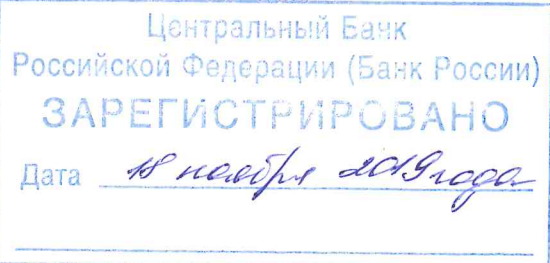 Центральный Банк
Российской Федерации (Банк России)
ЗАРЕГИСТРИРОВАНО
Дата 18 ноября 2019 года